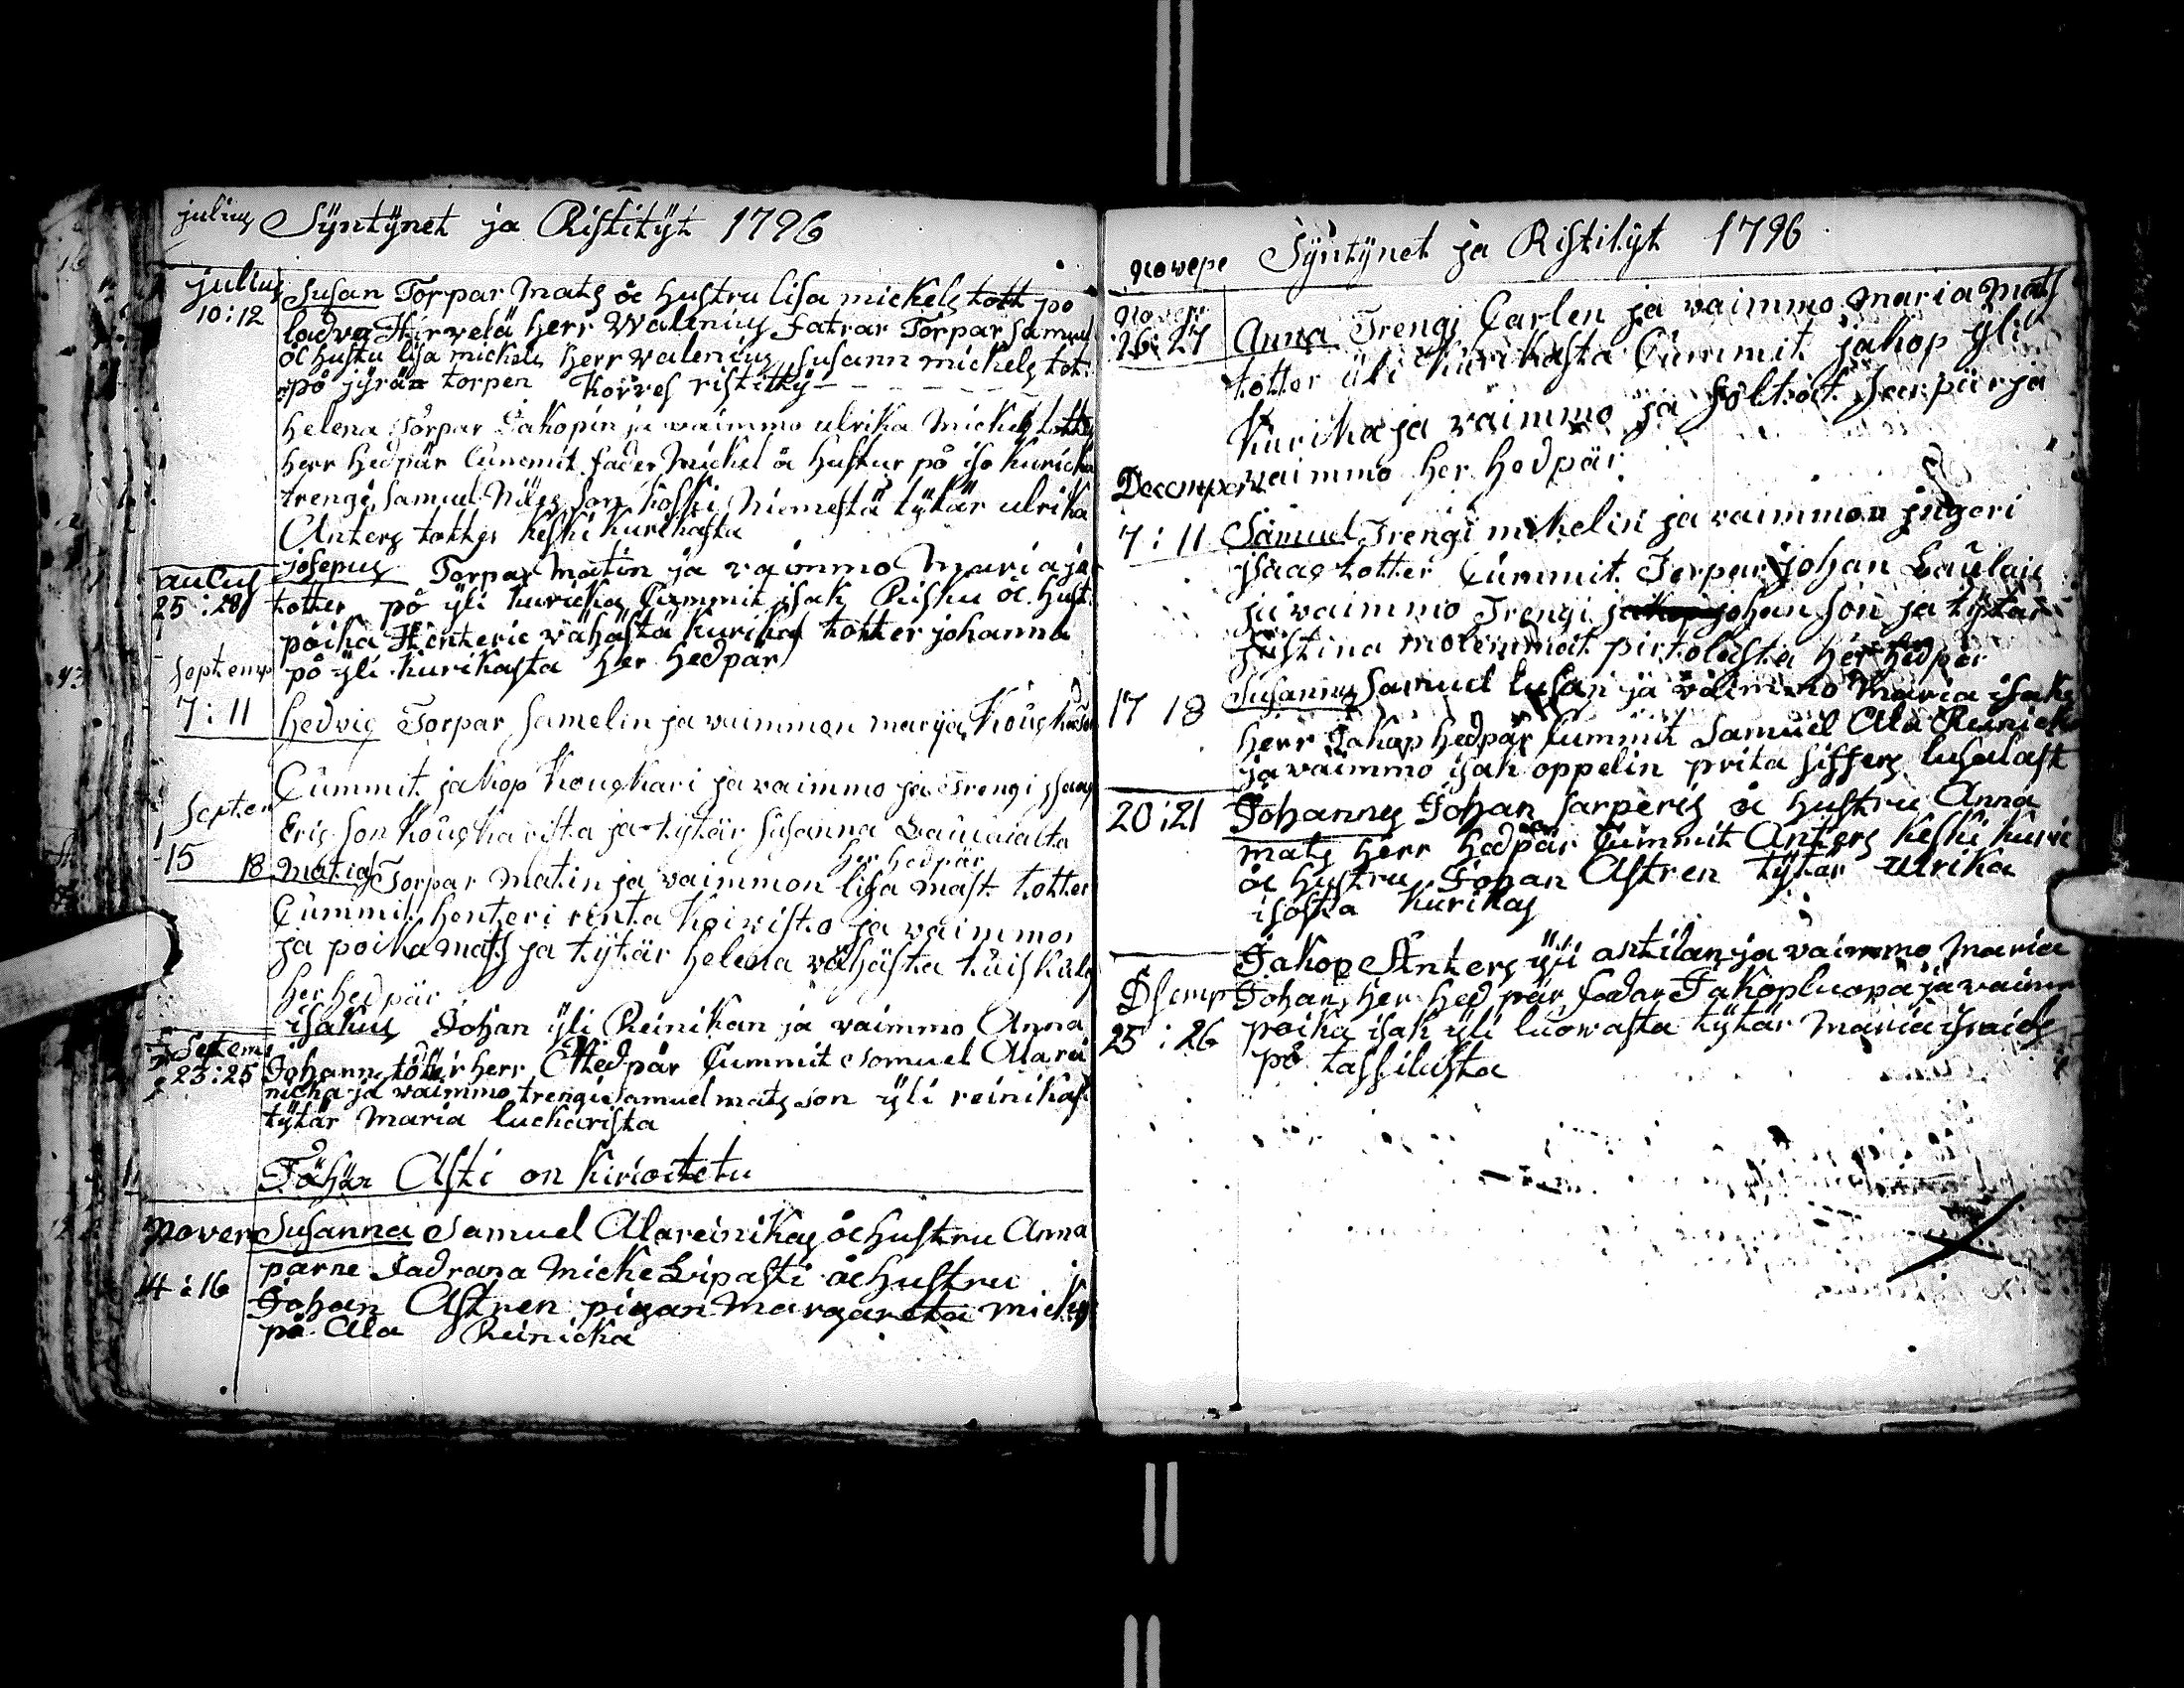 julius Syntynet ja Ristityt 1796
julius Susan Torpar Mats åc hustru lisa mickels tott po
10:12 ladva Hirvelä herr Walenius fatrar Torpar Samuel
åc hustu lisa mickels herr valenius Susann mickels tot
på jyrän torpen Korves ristitty
helena Torpar Jakopin ja vaimmo ulrika Mickels totter
herr hedpär Cummit fader Mickel åc hustur på iso kuricka
trengi Samuel Niles son koski Niemestä tytär ulrika
Anters totter keski kurikasta
aucus josepus Torpar Matin ja vaimmo Maria ja
25:28 totter på yli kuricka Cummit isak Risku åc Hust
poika Henteric vähästä kurikas totter johanna
på yli kurikasta her hedpär
Septemp
7:11 hedvig Torpar Samelin ja vaimmon marija
Cummit jakop kouskari ja vaimmo ja Trengi
Septem Eric son kouskarista ja tytär Susanna
her hedpär
15 18 Matias Torpar Matin ja vaimmon lisa mast totter
Cummit henteri rinta koivisto ja vaimmon
ja poika mats ja tytär helena vähästä
her hedpär
isakus Johan yli Reinikan ja vaimmo Anna
Septem Johanns töter herr Hedpär Cummit Samuel Ala rei
23:25 nicka ja vaimmo trengi Samuel mats son yli reinikast
tytär Maria luckarista
Tähän Asti on kirioitetu
Nover Susanna Samuel Alareinikas åc hustru Anna
parne fadrana Micke Lipasti åc hustru
14:16 Johan Astren pigan Margareta mickels
på Ala Reinicka
Novepe Syntynet ja Ristityt 1796
Nover
26:27 Anna Trengi Carlen ja vaimmo maria mats
totter üli kurikasta Cummit jakop yli
kurika ja vaimmo ja ja
Decemper vaimmo her hedpär
7:11 Samuel Trengi mikelin ja vaimmon
isaac totter Cummit Torpar johan
ja vaimmo Trengi johan son ja tytär
justina molemmat pirtolasta her hedpär
17 18 Susannus Samuel lusan ja vaimmo Maria isaks
herr Jakop hedpär Cummit Samuel Ala Reinick
ja vaimmo isak oppelin prita siffers
20:21 Johannes Johan Sarperis åc hustru Anna
mats herr hedpär Cummit Anters keski kuric
åc hustru Johan Astren tytär ulrika
isosta kurikas
Jakop Anters yli antilan ja vaimmo Maria
Dsemp Johans her hed pär fadar Jakop luopa ja vaimm
25:26 poika isak yli luowasta tytär Maria
på tassilasta